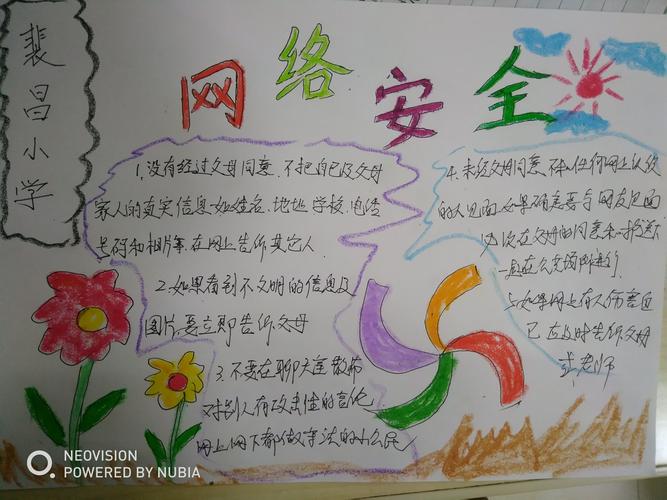 裴昌小学
网络安全
1.没有经过父母同意,不把自己及父母
家人的真实信息如姓名、地址、学校、电话
号码和相片等,在网上告诉其它人
2.如果看到不文明的信息及
图片,要立即告诉父母
3.不要在聊天室散布
对别人有攻击性的言论
网上网下都做守法的小公民
4.未经父母同意,不和任何网上认识
的人见面,如果确定要与网友见面
必须在父母的同意和
一起在公共场所进行
5.如果网上有人伤害自
己 应及时告诉父母
或老师
NEOVISION
POWERED BY NUBIA